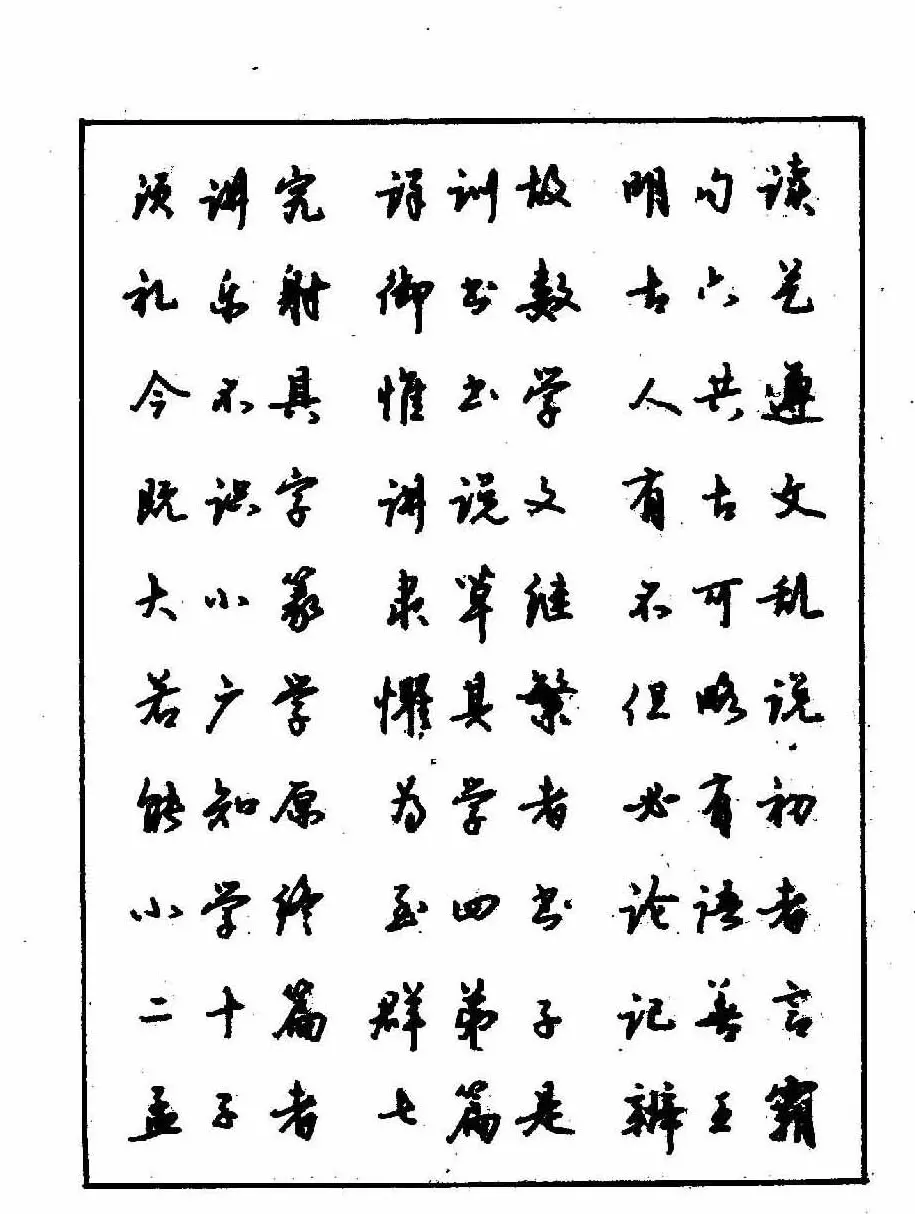 须讲究 详训故 明句读
礼乐射 御书数 古六艺
今不具 惟书学 人共遵
既识字 讲说文 有古文
大小篆 隶草继 不可乱
若广学 惧其繁 但略说
能知原 为学者 必有初
小学终 至四书 论语者
二十篇 群弟子 记善言
孟子者 七篇是 辨王霸